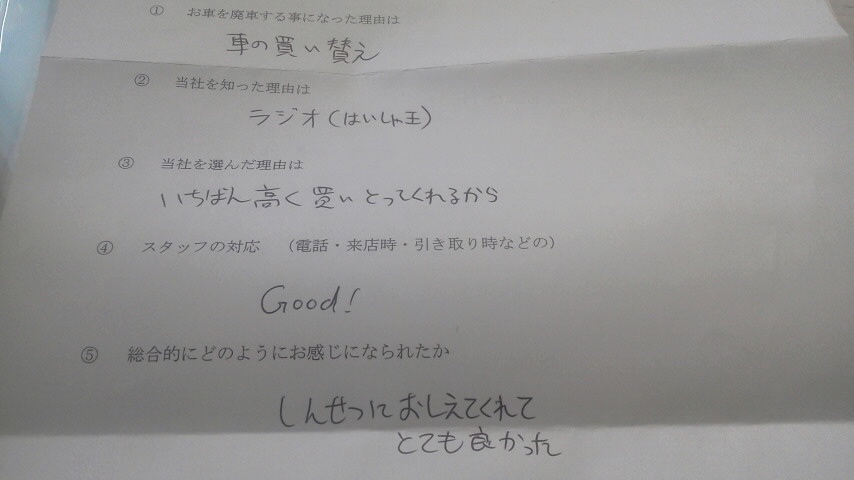 ① お車を廃車する事になった理由は
車の買い替え
② 当社を知った理由は
ラジオ(はいしゃ王)
③ 当社を選んだ理由は
いちばん高く買いとってくれるから
④ スタッフの対応 (電話・来店時・引き取り時などの)
Good!
⑤ 総合的にどのようにお感じになられたか
しんせつにおしえてくれて
とても良かった